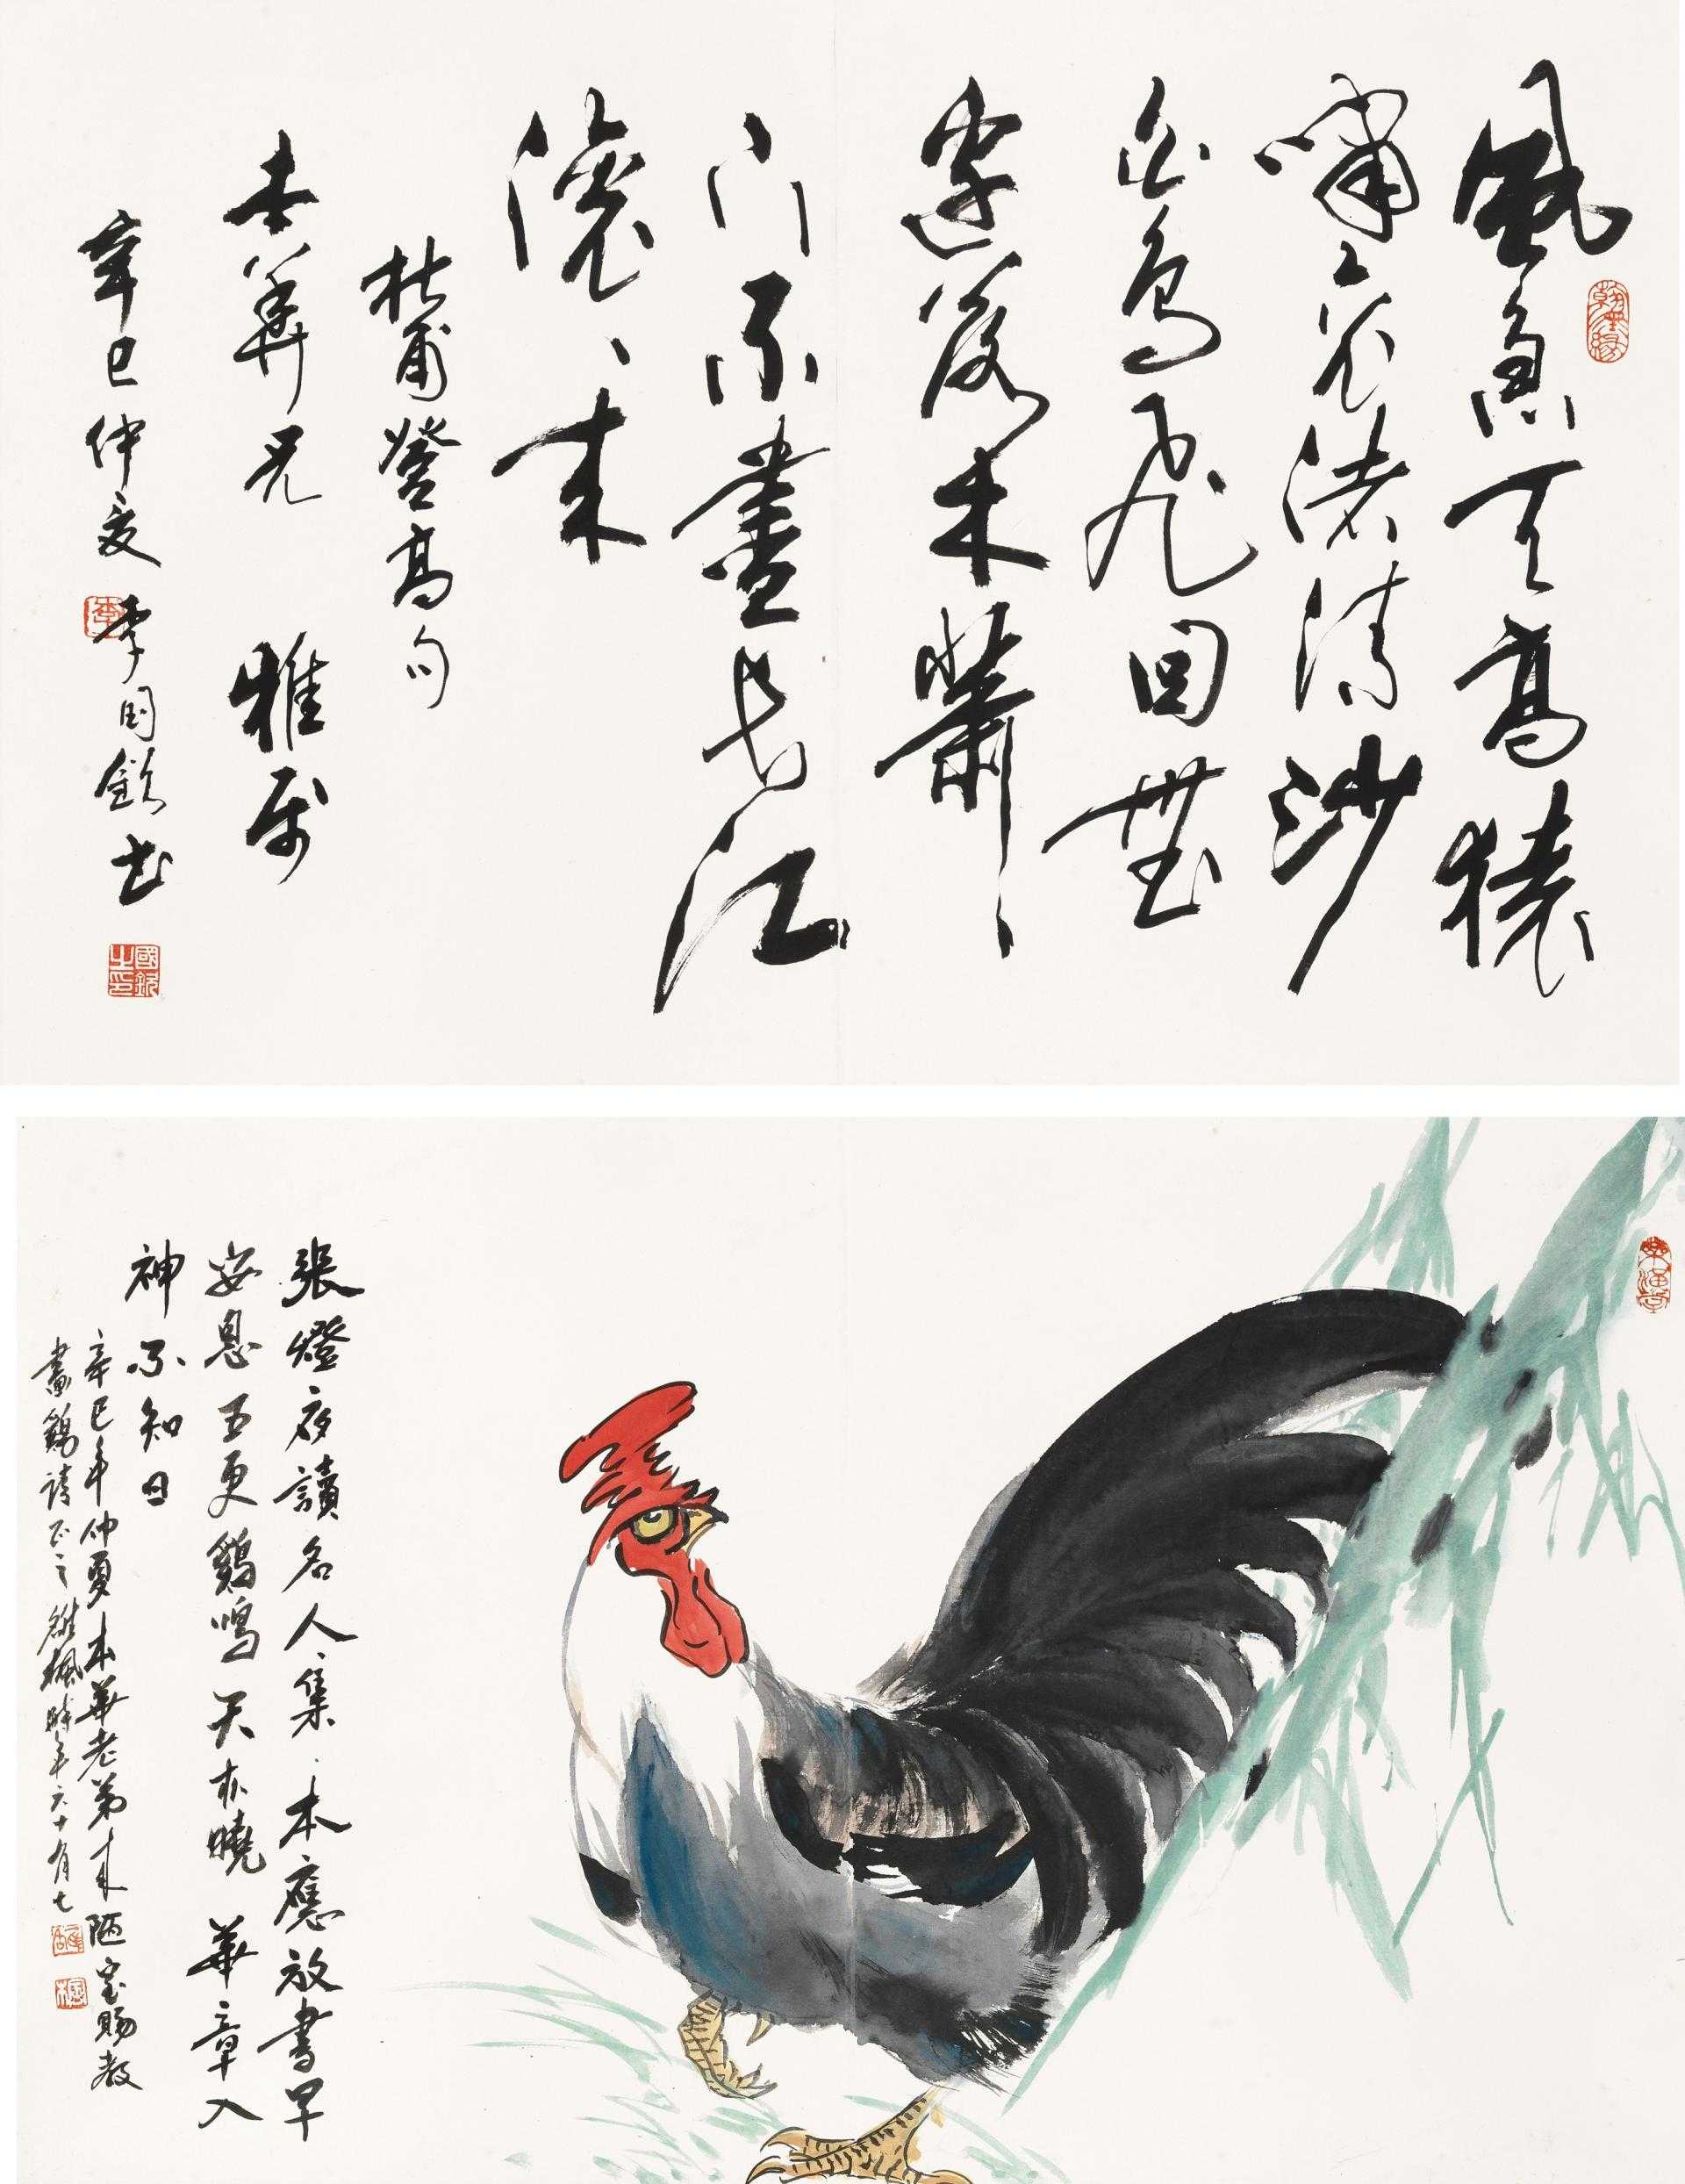 風急天高猿
嘯哀渚清沙
白鳥飛回無
邊落木蕭、
下不盡長江
滾、來
杜甫登高句
本華兄 雅屬
辛巳仲夏 李國欽書
翰墨緣
李
國欽之印
張燈夜讀名人集、本應放書早
安息五更鷄鳴天亦曉華章入
神不知日
辛巳年仲夏本華老弟來陋室賜教
畫鷄請正之 楓時年六十有七
楓